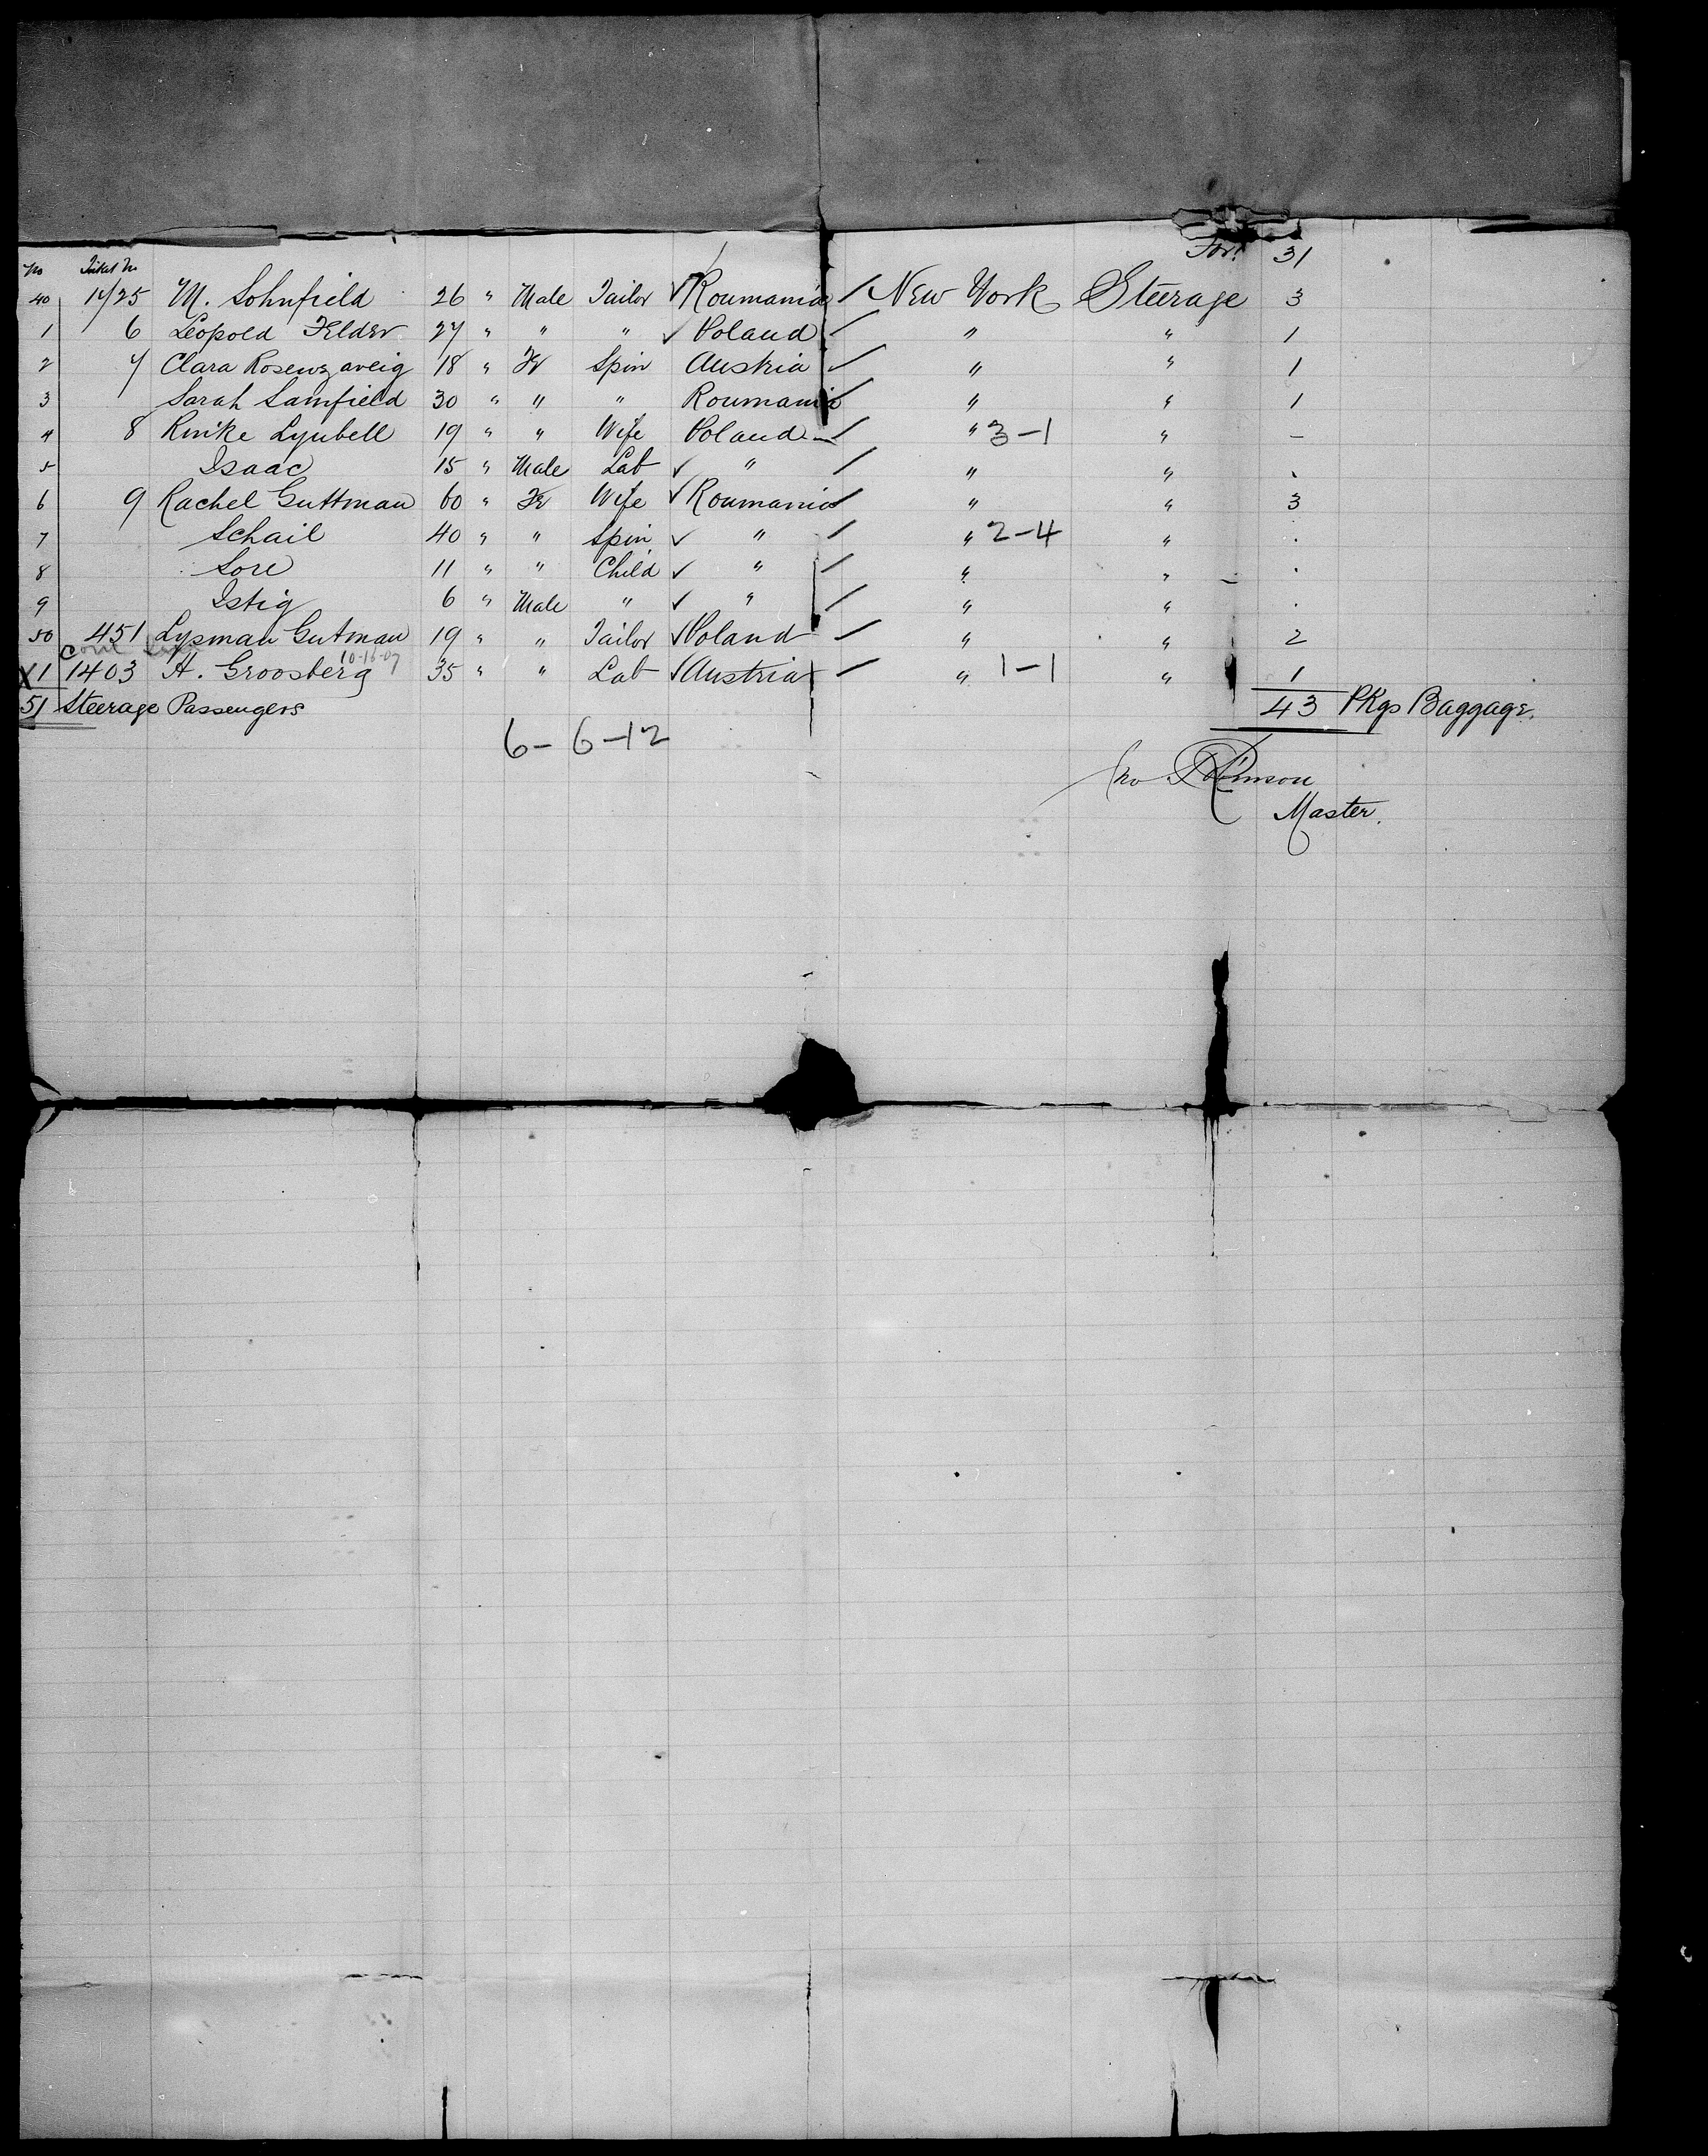 For. 31
No Ticket No
40 1425 M. Sohnfield 26 " Male Tailor ✓ Roumania / New York Steerage 3
1 6 Leopold Felder 27 " " " ✓ Poland / " " 1
2 7 Clara Rosenzaveig 18 " Fe Spin Austria / " " 1
3 Sarah Samfield 30 " " " Roumania / " " 1
4 8 Rivike Lynbell 19 " " Wife Poland / " 3-1 " -
5 Isaac 15 " Male Lab ✓ " / " " .
6 9 Rachel Guttman 60 " Fe Wife ✓ Roumania / " " 3
7 Schail 40 " " Spin ✓ " / " 2-4 " .
8 Sore 11 " " Child ✓ " / " " .
9 Istig 6 " Male " ✓ " / " " .
50 451 Lysman Gutman 19 " " Tailor ✓ Poland / " " 2
10-16-07
X1 1403 A. Groosberg 35 " " Lab ✓ Austria / " 1-1 " 1
51 Steerage Passengers 43 Pkgs Baggage.
6-6-12
Master.